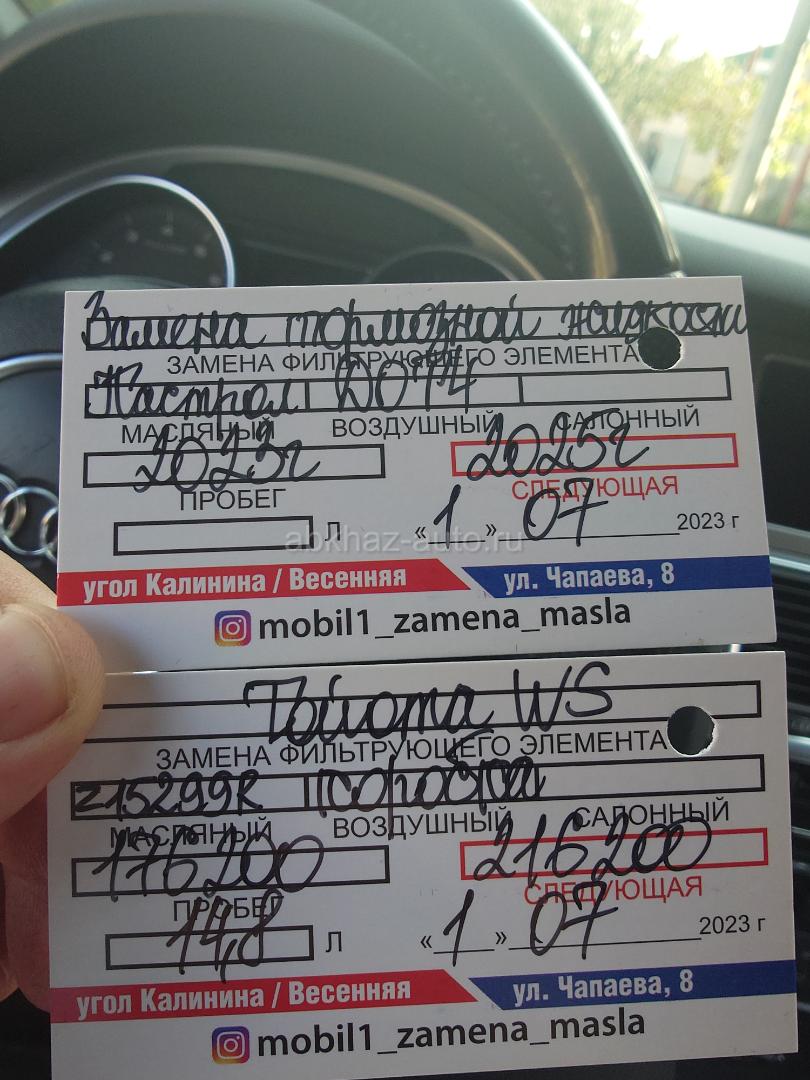 Замена тормозной жидкости
ЗАМЕНА ФИЛЬТРУЮЩЕГО ЭЛЕМЕНТА
Кастрол DOT4
МАСЛЯНЫЙ ВОЗДУШНЫЙ САЛОННЫЙ
2023г 2025г
ПРОБЕГ СЛЕДУЮЩАЯ
Л «1» 07 2023 г
abkhaz-auto.ru
угол Калинина / Весенняя ул. Чапаева, 8
mobil1_zamena_masla
Тойота WS
ЗАМЕНА ФИЛЬТРУЮЩЕГО ЭЛЕМЕНТА
z15299R коробка
МАСЛЯНЫЙ ВОЗДУШНЫЙ САЛОННЫЙ
176200 216200
ПРОБЕГ СЛЕДУЮЩАЯ
14,8 Л «1» 07 2023 г
угол Калинина / Весенняя ул. Чапаева, 8
mobil1_zamena_masla